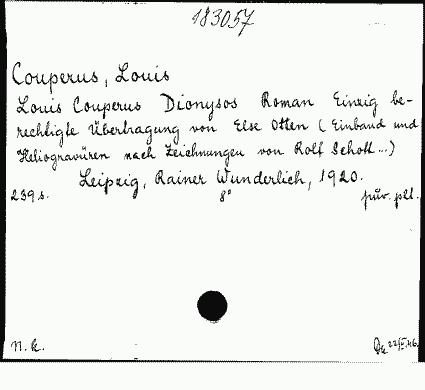 183057
Couperus, Louis
Louis Couperus Dionysos Roman Einzig be-
rechtigte Übertragung von Else Otten (Einband und
Heliogravüren nach Zeichnungen von Rolf Schott...)
Leipzig, Rainer Wunderlich, 1920.
239 s. 8° pův. plt.
N. k. 22/II.46.